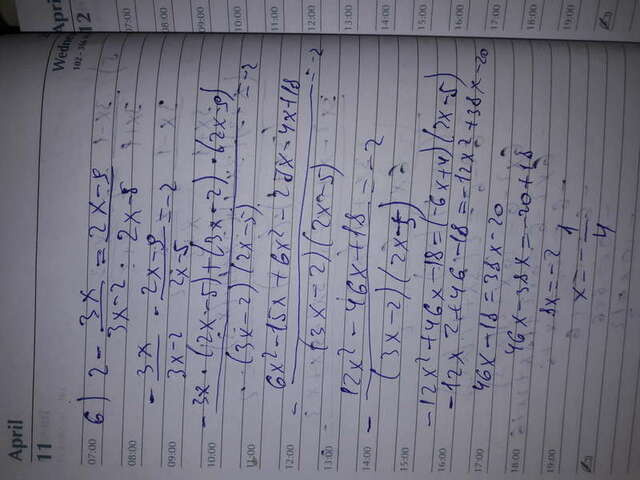 April
11
Wedne
102 - 
Apri
12
07:00
6) 2 - 3x/(3x-2) = (2x-9)/(2x-5)
08:00
- 3x/(3x-2) - (2x-9)/(2x-5) = -2
09:00
10:00
- (3x·(2x-5)+(3x-2)·(2x-9))/((3x-2)(2x-5)) = -2
11:00
12:00
- (6x²-15x+6x²-28x-4x+18)/((3x-2)(2x-5)) = -2
13:00
14:00
- (12x²-46x+18)/((3x-2)(2x-5)) = -2
15:00
-12x²+46x-18=(-6x+4)(2x-5)
16:00
-12x²+46-18=-12x²+38x-20
17:00
46x-18=38x-20
18:00
46x-38x=-20+18
19:00
8x=-2
x=-1/4
07:00
08:00
09:00
10:00
11:00
12:00
13:00
14:00
15:00
16:00
17:00
18:00
19:00